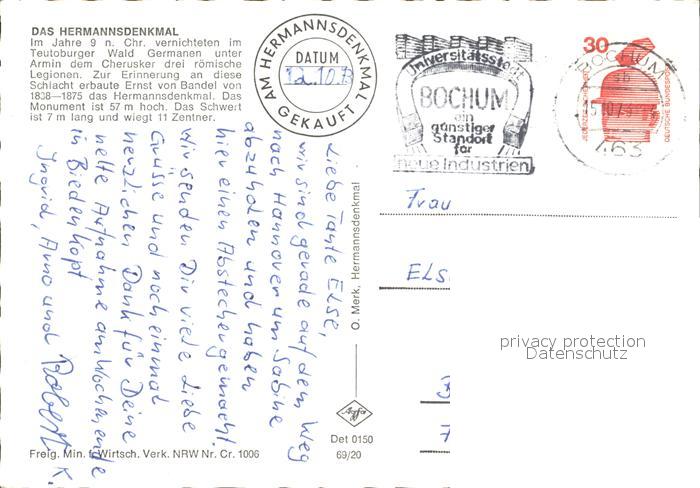 DAS HERMANNSDENKMAL
Im Jahre 9 n. Chr. vernichteten im
Teutoburger Wald Germanen unter
Armin dem Cherusker drei römische
Legionen. Zur Erinnerung an diese
Schlacht erbaute Ernst von Bandel von
1838—1875 das Hermannsdenkmal. Das
Monument ist 57 m hoch. Das Schwert
ist 7 m lang und wiegt 11 Zentner.
AM HERMANNSDENKMAL
DATUM
GEKAUFT
Universitätsstadt
BOCHUM
ein
günstiger
Standort
für
neue Industrien
30
BOCHUM
463
DEUTSCHE BUNDESPOST
Liebe Tante Else,
wir sind gerade auf dem Weg
nach Hannover um Sabine
abzuholen und haben
hier einen Abstecher gemacht.
Wir senden Dir viele liebe
Grüsse und noch einmal
herzlichen Dank für Deine
nette Aufnahme am Wochenende
in Biedenkopf
Ingrid, Arno und Robert K.
O. Merk, Hermannsdenkmal
Frau
Els
privacy protection
Datenschutz
Agfa
Det 0150
69/20
Freig. Min. f. Wirtsch. Verk. NRW Nr. Cr. 1006